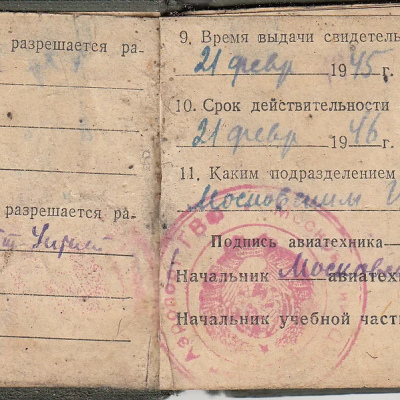 разрешается ра-
разрешается ра-
9. Время выдачи свидетель
21 февр 1945 г.
10. Срок действительности
21 февр 1946 г.
11. Каким подразделением
Московским
Подпись авиатехника
Начальник авиатехн
Начальник учебной част